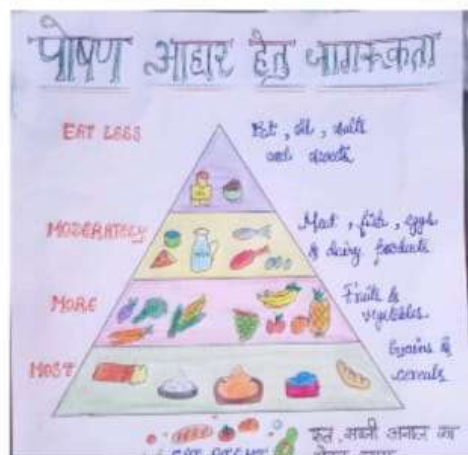 पोषण आहार हेतु जागरूकता
EAT LESS
Fat, oil, salts
and sweets
MODERATELY
Meat, fish, eggs
& dairy products
MORE
Fruits &
vegetables
MOST
Grains &
cereals
फल, सब्जी अनाज का